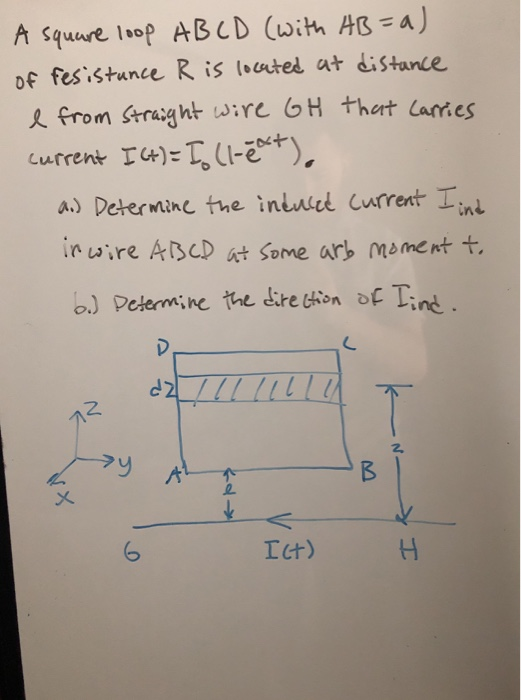 A square loop ABCD (with AB = a)
of resistance R is located at distance
l from straight wire GH that carries
current I(t) = I₀ (1-e^-αt).
a.) Determine the induced current I ind
in wire ABCD at some arb moment t.
b.) Determine the direction of I ind.
D C
dz
z
y
x
A B
l
z
G I(t) H